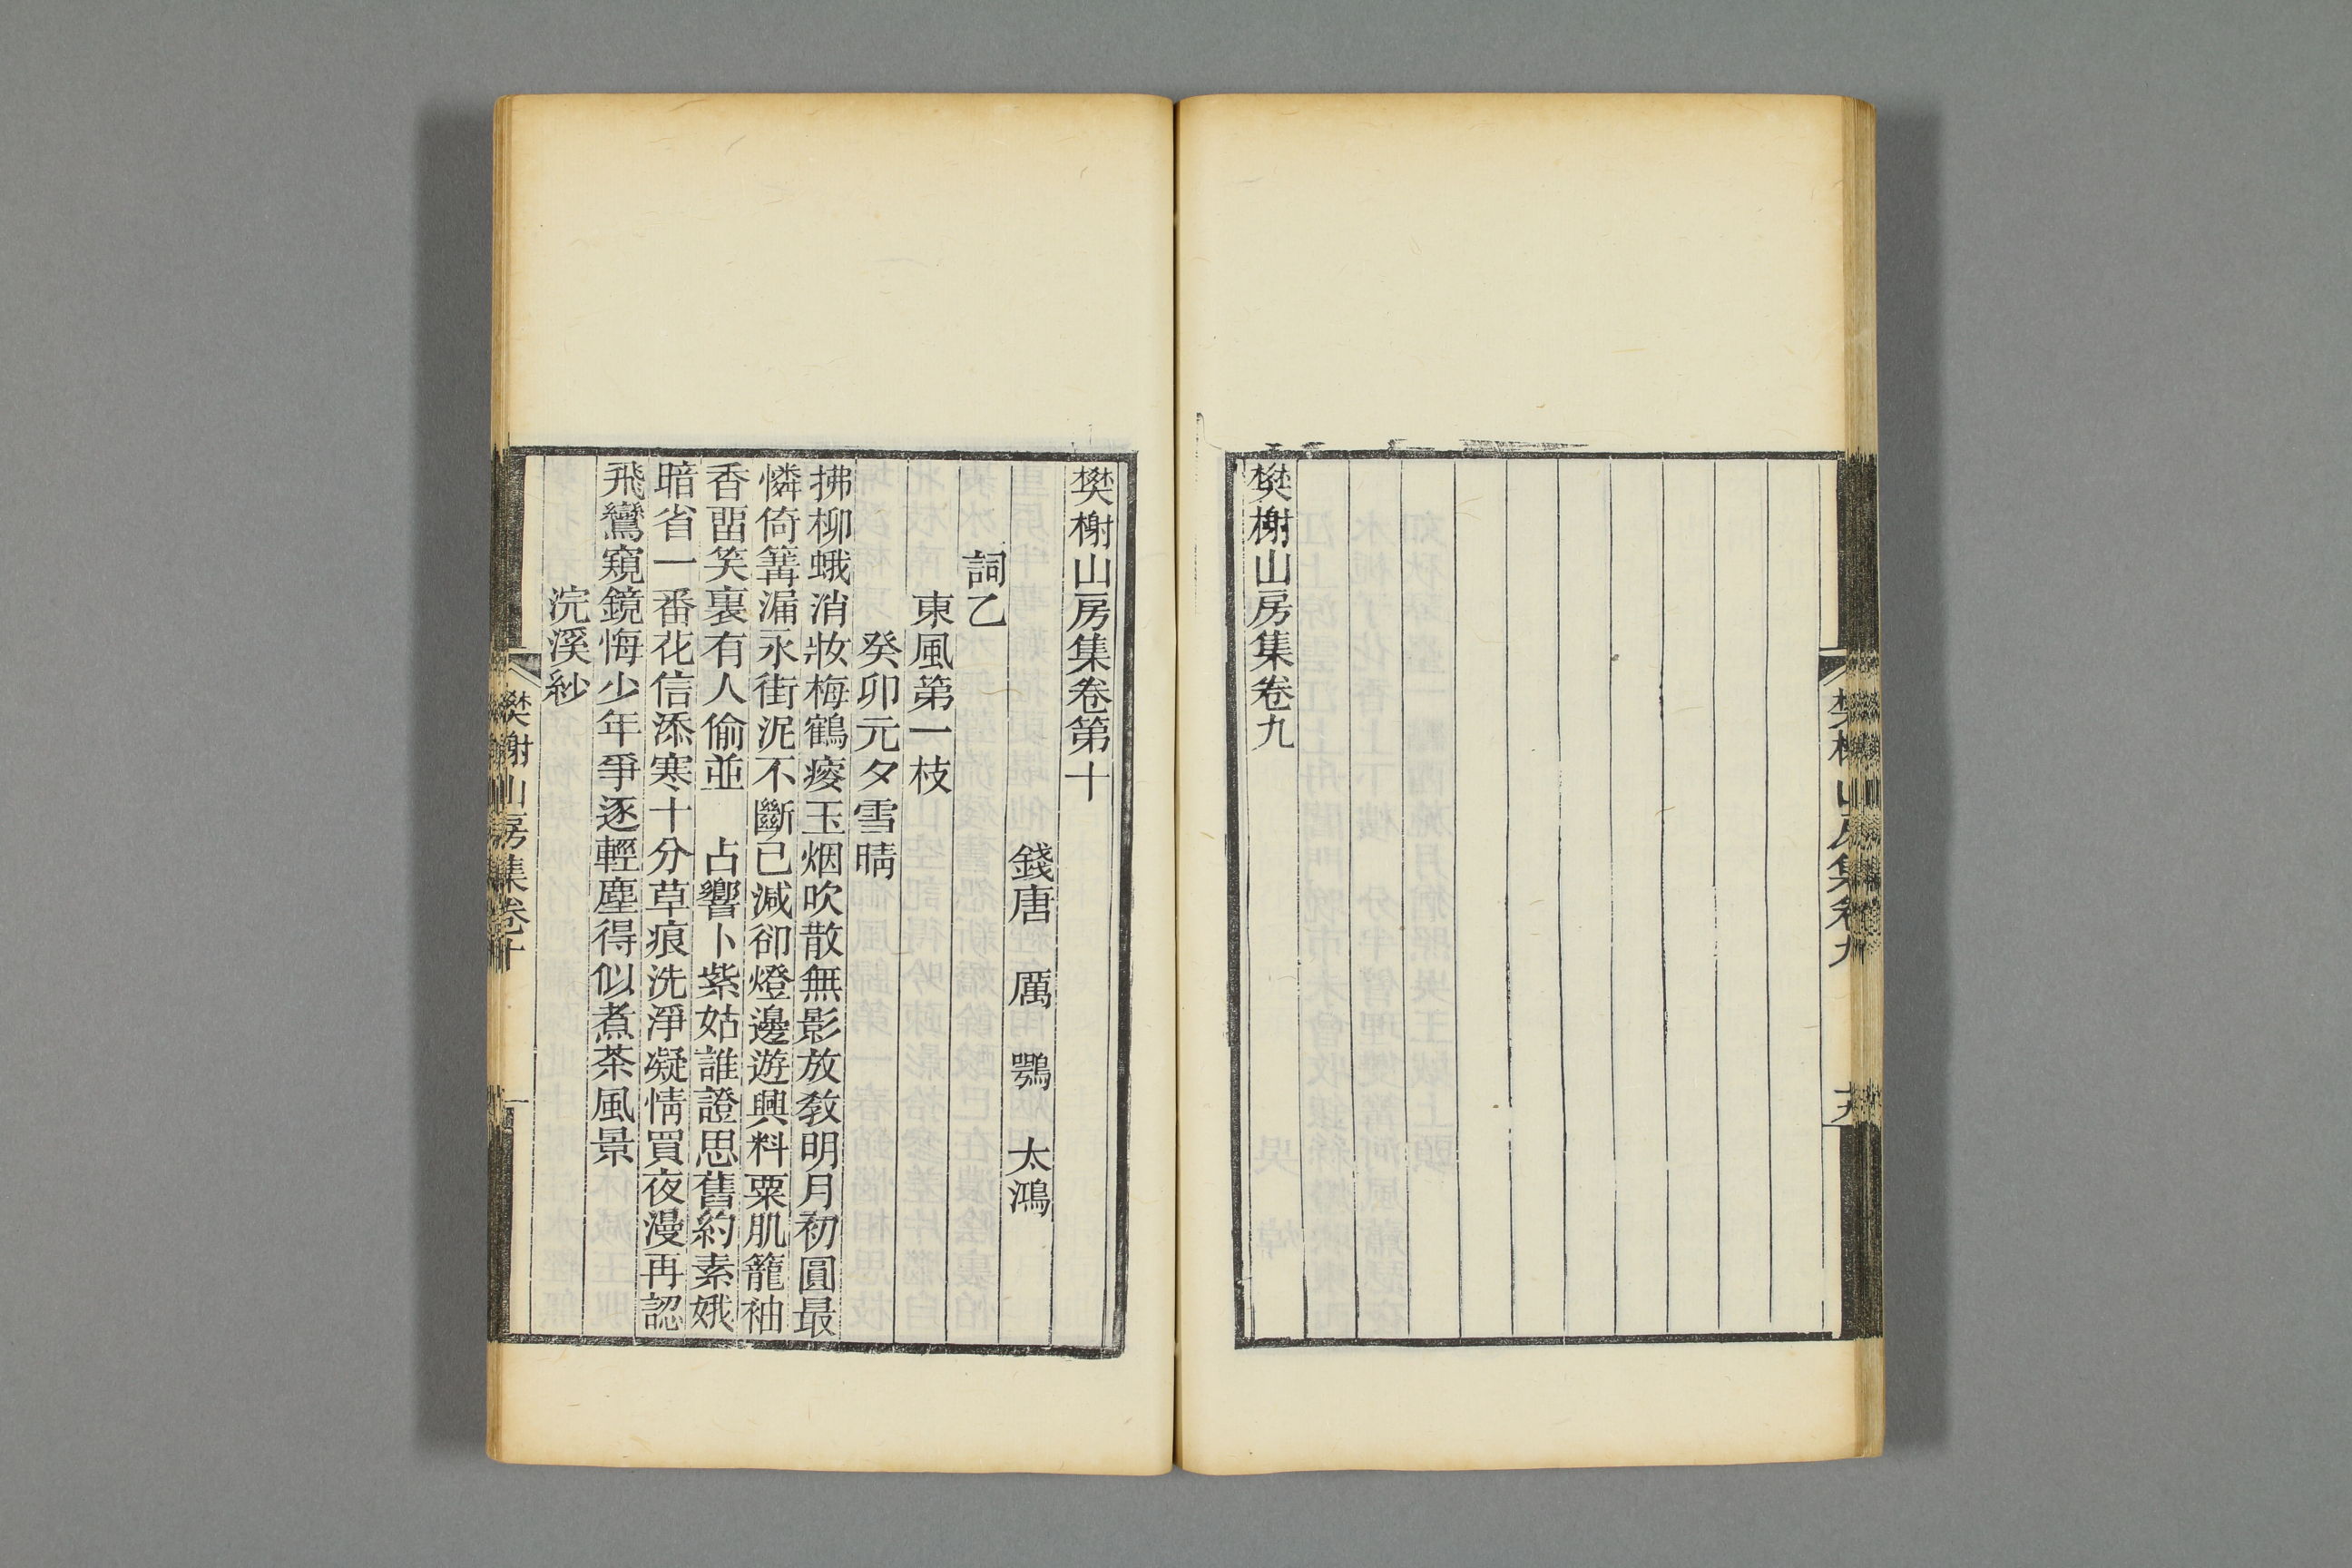 樊榭山房集卷九
樊榭山房集卷九
樊榭山房集卷第十
錢唐 厲 鶚 太鴻
詞乙
東風第一枝
癸卯元夕雪晴
拂柳蛾消妝梅鶴瘦玉烟吹散無影放教明月初圓最
憐倚篝漏永街泥不斷已減卻燈邊遊興料粟肌籠袖
香畱笑裏有人偷並 占響卜紫姑誰證思舊約素娥
暗省一番花信添寒十分草痕洗淨凝情買夜漫再認
飛鸞窺鏡悔少年爭逐輕塵得似煮茶風景
浣溪紗
樊榭山房集卷十
一